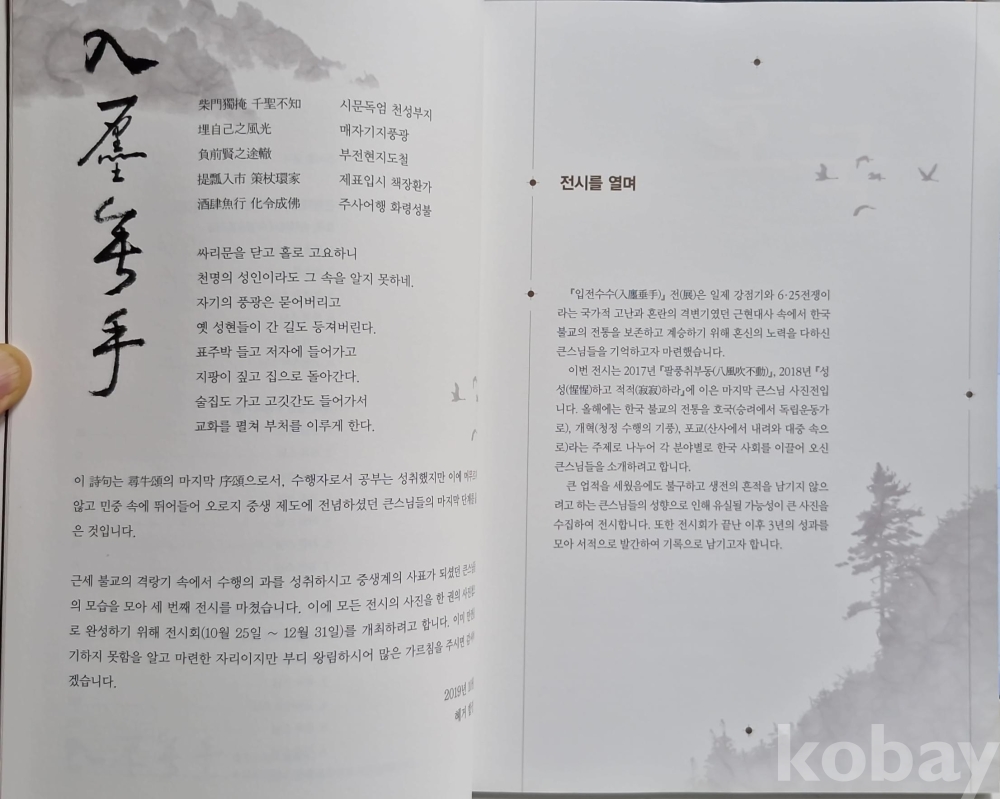 入廛垂手
柴門獨掩 千聖不知 시문독엄 천성부지
埋自己之風光 매자기지풍광
負前賢之途轍 부전현지도철
提瓢入市 策杖環家 제표입시 책장환가
酒肆魚行 化令成佛 주사어행 화령성불
싸리문을 닫고 홀로 고요하니
천명의 성인이라도 그 속을 알지 못하네.
자기의 풍광은 묻어버리고
옛 성현들이 간 길도 등져버린다.
표주박 들고 저자에 들어가고
지팡이 짚고 집으로 돌아간다.
술집도 가고 고깃간도 들어가서
교화를 펼쳐 부처를 이루게 한다.
이 詩句는 尋牛頌의 마지막 序頌으로서, 수행자로서 공부는 성취했지만 이에
않고 민중 속에 뛰어들어 오로지 중생 제도에 전념하셨던 큰스님들의 마지막
은 것입니다.
근세 불교의 격랑기 속에서 수행의 과를 성취하시고 중생계의 사표가 되셨던
의 모습을 모아 세 번째 전시를 마쳤습니다. 이에 모든 전시의 사진을 한 권의
로 완성하기 위해 전시회(10월 25일 ~ 12월 31일)를 개최하려고 합니다. 이미
기하지 못함을 알고 마련한 자리이지만 부디 왕림하시어 많은 가르침을 주시면
겠습니다.
2019년
혜거
전시를 열며
『입전수수(入廛垂手)』 전(展)은 일제 강점기와 6·25전쟁이
라는 국가적 고난과 혼란의 격변기였던 근현대사 속에서 한국
불교의 전통을 보존하고 계승하기 위해 혼신의 노력을 다하신
큰스님들을 기억하고자 마련했습니다.
이번 전시는 2017년 『팔풍취부동(八風吹不動)』, 2018년 『성
성(惺惺)하고 적적(寂寂)하라』에 이은 마지막 큰스님 사진전입
니다. 올해에는 한국 불교의 전통을 호국(승려에서 독립운동가
로), 개혁(청정 수행의 기풍), 포교(산사에서 내려와 대중 속으
로)라는 주제로 나누어 각 분야별로 한국 사회를 이끌어 오신
큰스님들을 소개하려고 합니다.
큰 업적을 세웠음에도 불구하고 생전의 흔적을 남기지 않으
려고 하는 큰스님들의 성향으로 인해 유실될 가능성이 큰 사진을
수집하여 전시합니다. 또한 전시회가 끝난 이후 3년의 성과를
모아 서적으로 발간하여 기록으로 남기고자 합니다.
kobay